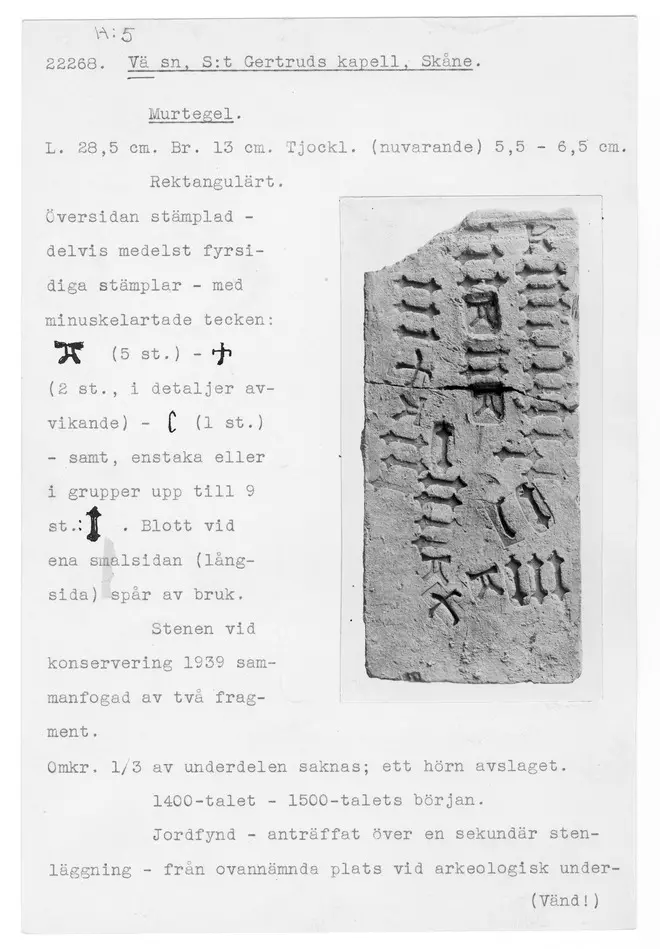 H:5
22268. Vä sn, S:t Gertruds kapell, Skåne.
Murtegel.
L. 28,5 cm. Br. 13 cm. Tjockl. (nuvarande) 5,5 - 6,5 cm.
Rektangulärt.
Översidan stämplad -
delvis medelst fyrsi-
diga stämplar - med
minuskelartade tecken:
(5 st.) -
(2 st., i detaljer av-
vikande) - (1 st.)
- samt, enstaka eller
i grupper upp till 9
st.: . Blott vid
ena smalsidan (lång-
sida) spår av bruk.
Stenen vid
konservering 1939 sam-
manfogad av två frag-
ment.
Omkr. 1/3 av underdelen saknas; ett hörn avslaget.
1400-talet - 1500-talets början.
Jordfynd - anträffat över en sekundär sten-
läggning - från ovannämnda plats vid arkeologisk under-
(Vänd!)